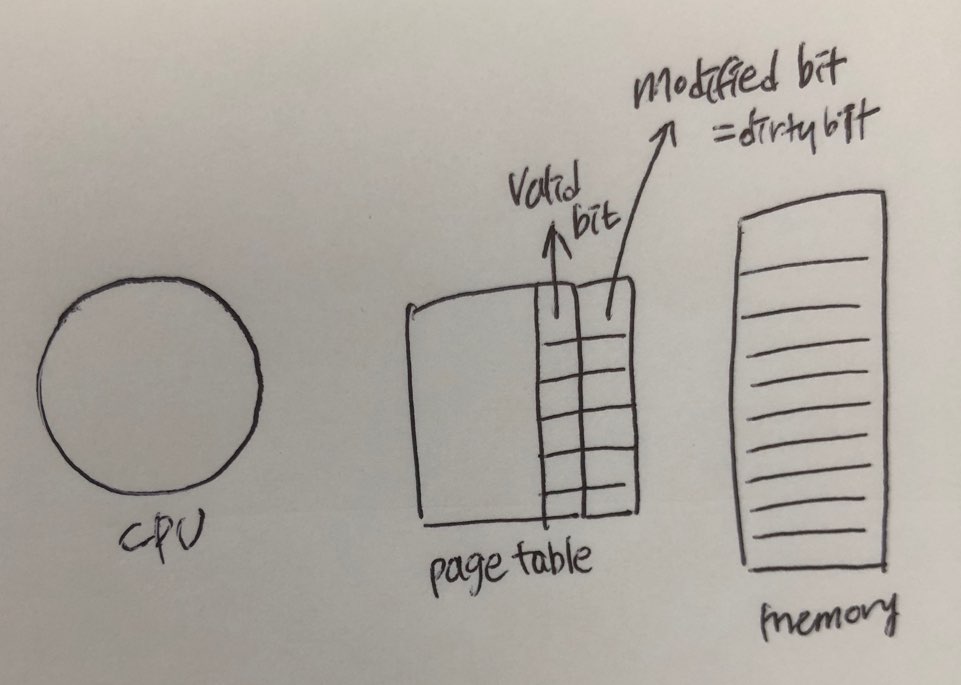 modified bit
=dirty bit
Valid
bit
CPU
page table
memory